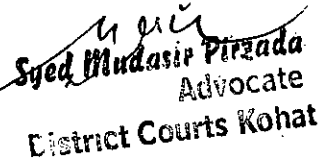 Syed Mudasir Pirzada
Advocate
District Courts Kohat